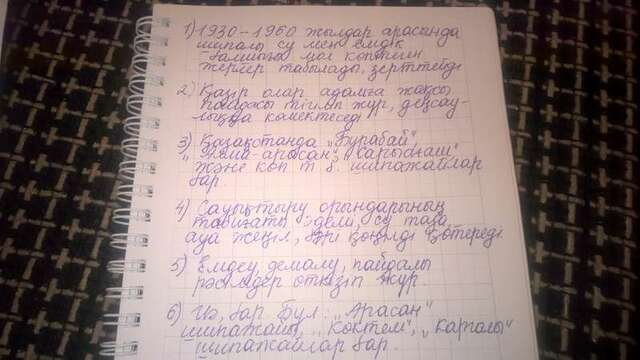 1) 1930-1960 жылдар арасында
шипалы су мен емдік
балшыға мол көптеген
жерлер табылады, зерттейді
2) Қазір олар адамға жақсы
пайдасы тігізіп жүр, денсау-
лыққа көмектеседі
3) Қазақстанда „Бурабай",
„Алма-арасан", „Сарыағаш"
және көп т. б. шипажайлар
бар.
4) Сауықтыру орындарының
табиғаты әдемі, су таза,
ауа жеңіл, бәрі көңілді көтереді
5) Емдеу, демалу, пайдалы
рәсімдер өткізіп жүр.
6) Иә, бар. Бұл: „Арасан"
шипажайы, „Көктем", „Қарғалы"
шипажайлар бар.